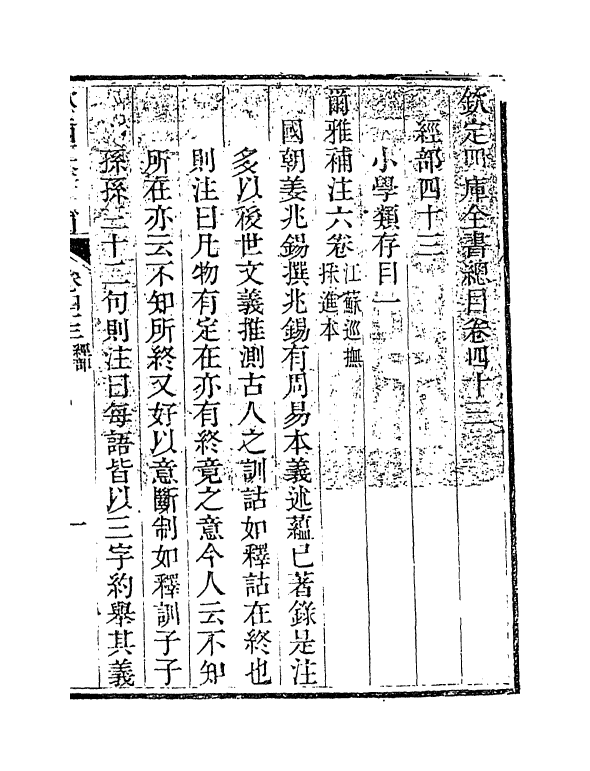 欽定四庫全書總目卷四十三
經部四十三
小學類存目一
爾雅補注六卷江蘇巡撫採進本
國朝姜兆錫撰兆錫有周易本義述蘊已著錄是注
多以後世文義推測古人之訓詁如釋詁在終也
則注曰凡物有定在亦有終竟之意今人云不知
所在亦云不知所終又好以意斷制如釋訓子子
孫孫三十二句則注曰每語皆以三字約舉其義
卷四十三
經部
一